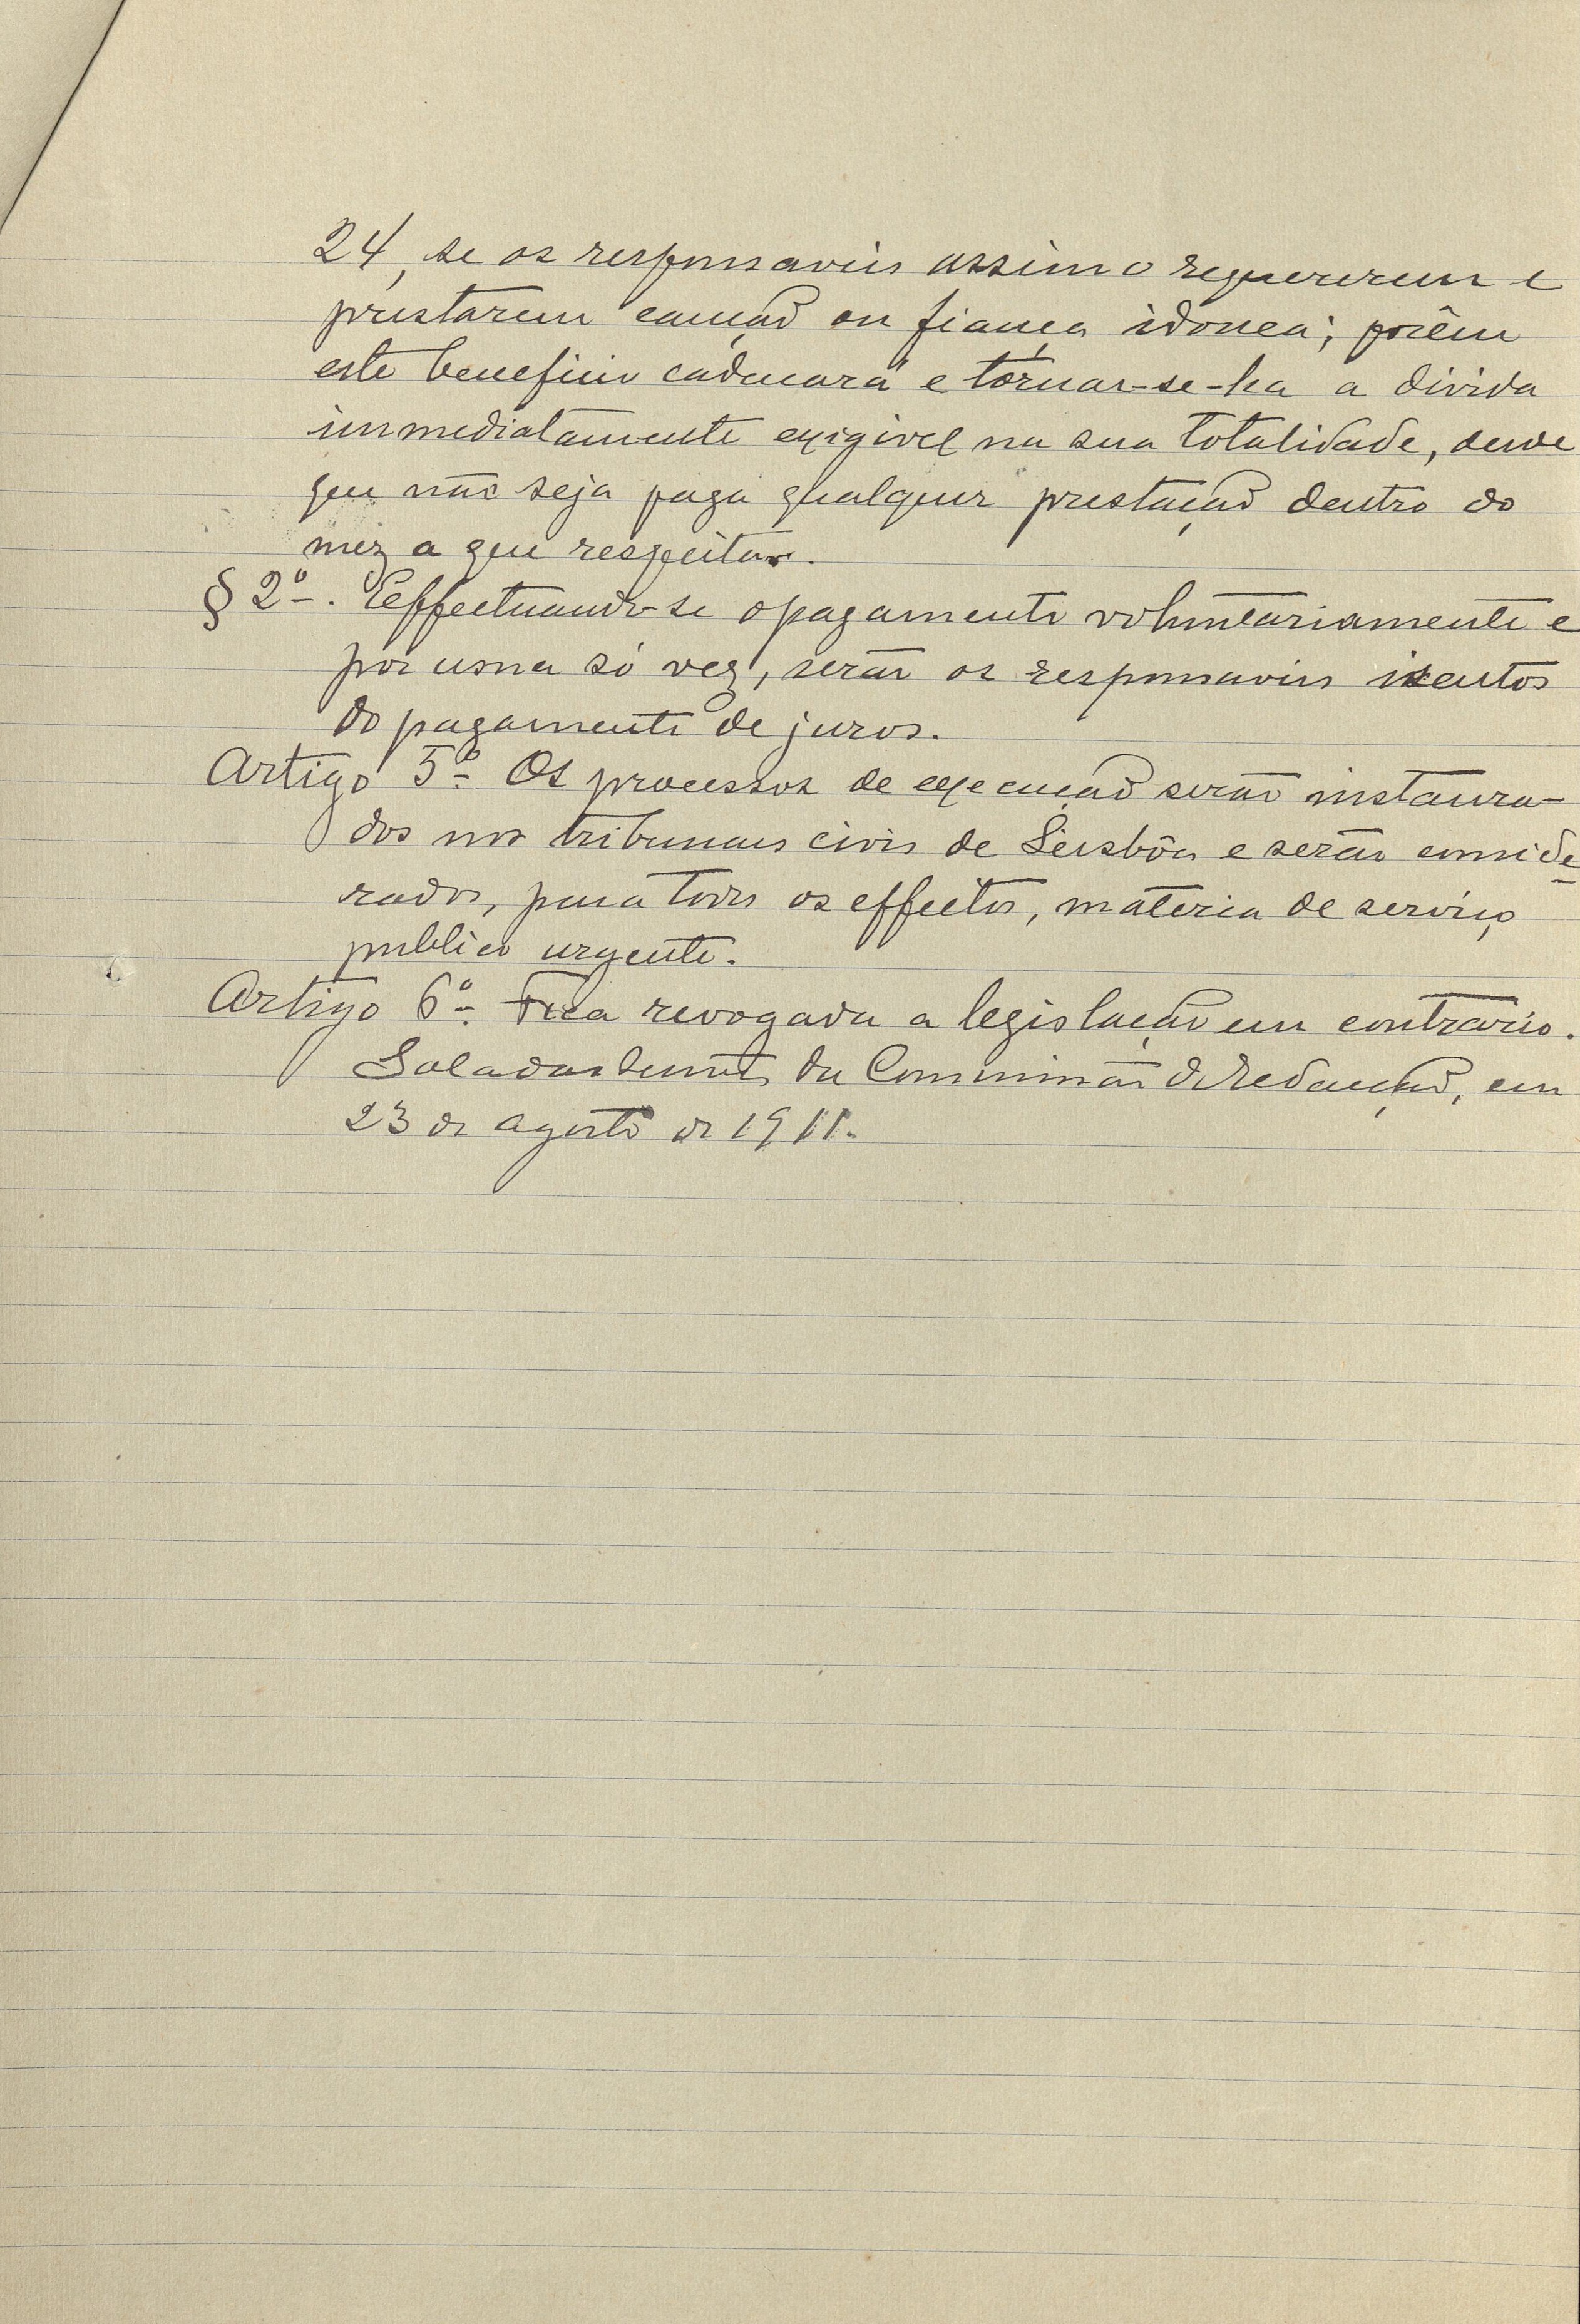 24, se os responsaveis assim o requererem e
prestarem caução ou fiança idonea; porêm
este beneficio caducará e tornar-se-ha a divida
immediatamente exigivel na sua totalidade, desde
que não seja paga qualquer prestação dentro do
mez a que respeitar.
§ 2º. Effectuando-se o pagamento voluntariamente e
por uma só vez, serão os responsaveis isentos
do pagamento de juros.
Artigo 5º. Os processos de execução serão instaura-
dos nos tribunaes civis de Lisbôa e serão conside
rados, para todos os effeitos, materia de serviço
publico urgente.
Artigo 6º. Fica revogada a legislação em contrario.
Sala das Sessões da Commissão de Redacção, em
23 de agosto de 1911.